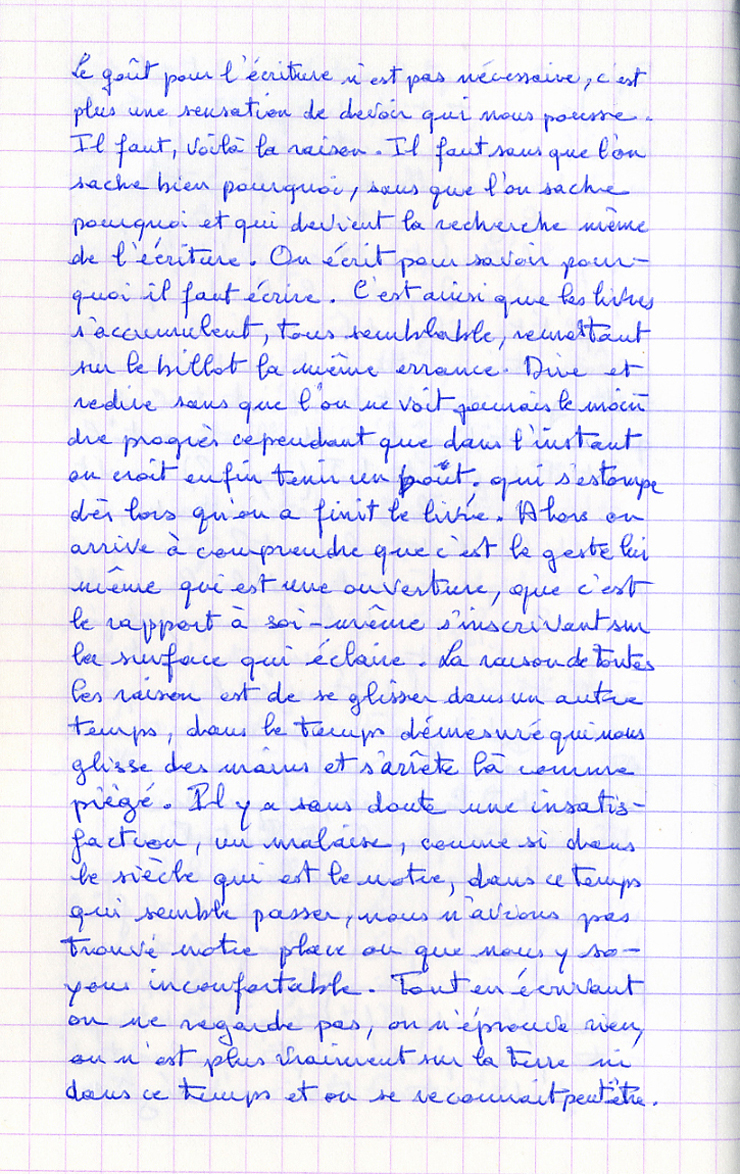 Le goût pour l'écriture n'est pas nécessaire, c'est
plus une sensation de devoir qui nous pousse.
Il faut, voilà la raison. Il faut sans que l'on
sache bien pourquoi, sans que l'on sache
pourquoi et qui devient la recherche même
de l'écriture. On écrit pour savoir pour-
quoi il faut écrire. C'est ainsi que les livres
s'accumulent, tous semblable, remettant
sur le billot la même errance. Dire et
redire sans que l'on ne voit jamais le moin
dre progrès cependant que dans l'instant
on croit enfin tenir un goût, qui s'estompe
dès lors qu'on a finit le livre. Alors on
arrive à comprendre que c'est le geste lui
même qui est une ouverture, que c'est
le rapport à soi-même s'inscrivant sur
la surface qui éclaire. La raison de toutes
les raison est de se glisser dans un autre
temps, dans le temps démesuré qui nous
glisse des mains et s'arrête là comme
piègé. Il y a sans doute une insatis-
faction, un malaise, comme si dans
le siècle qui est le notre, dans ce temps
qui semble passer, nous n'avions pas
trouvé notre place ou que nous y so-
yons inconfortable. Tout en écrivant
on ne regarde pas, on n'éprouve rien,
on n'est plus vraiment sur la terre ni
dans ce temps et on se reconnait peut être.